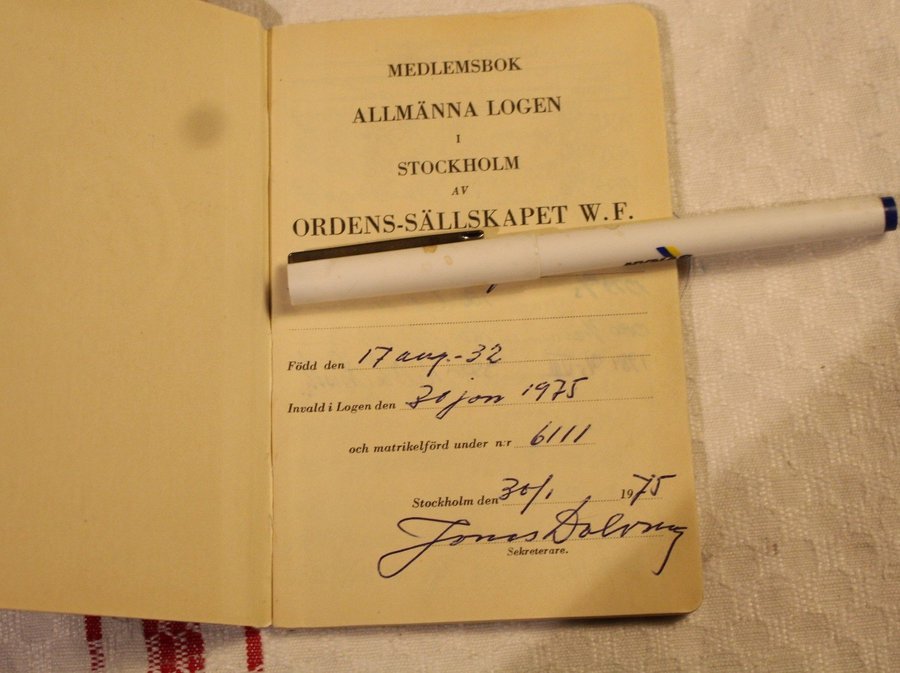 MEDLEMSBOK
ALLMÄNNA LOGEN
I
STOCKHOLM
AV
ORDENS-SÄLLSKAPET W.F.
Född den 17 aug.-32
Invald i Logen den 30 jan 1975
och matrikelförd under n:r 6111
Stockholm den 30/1 1975
Jonas
Sekreterare.